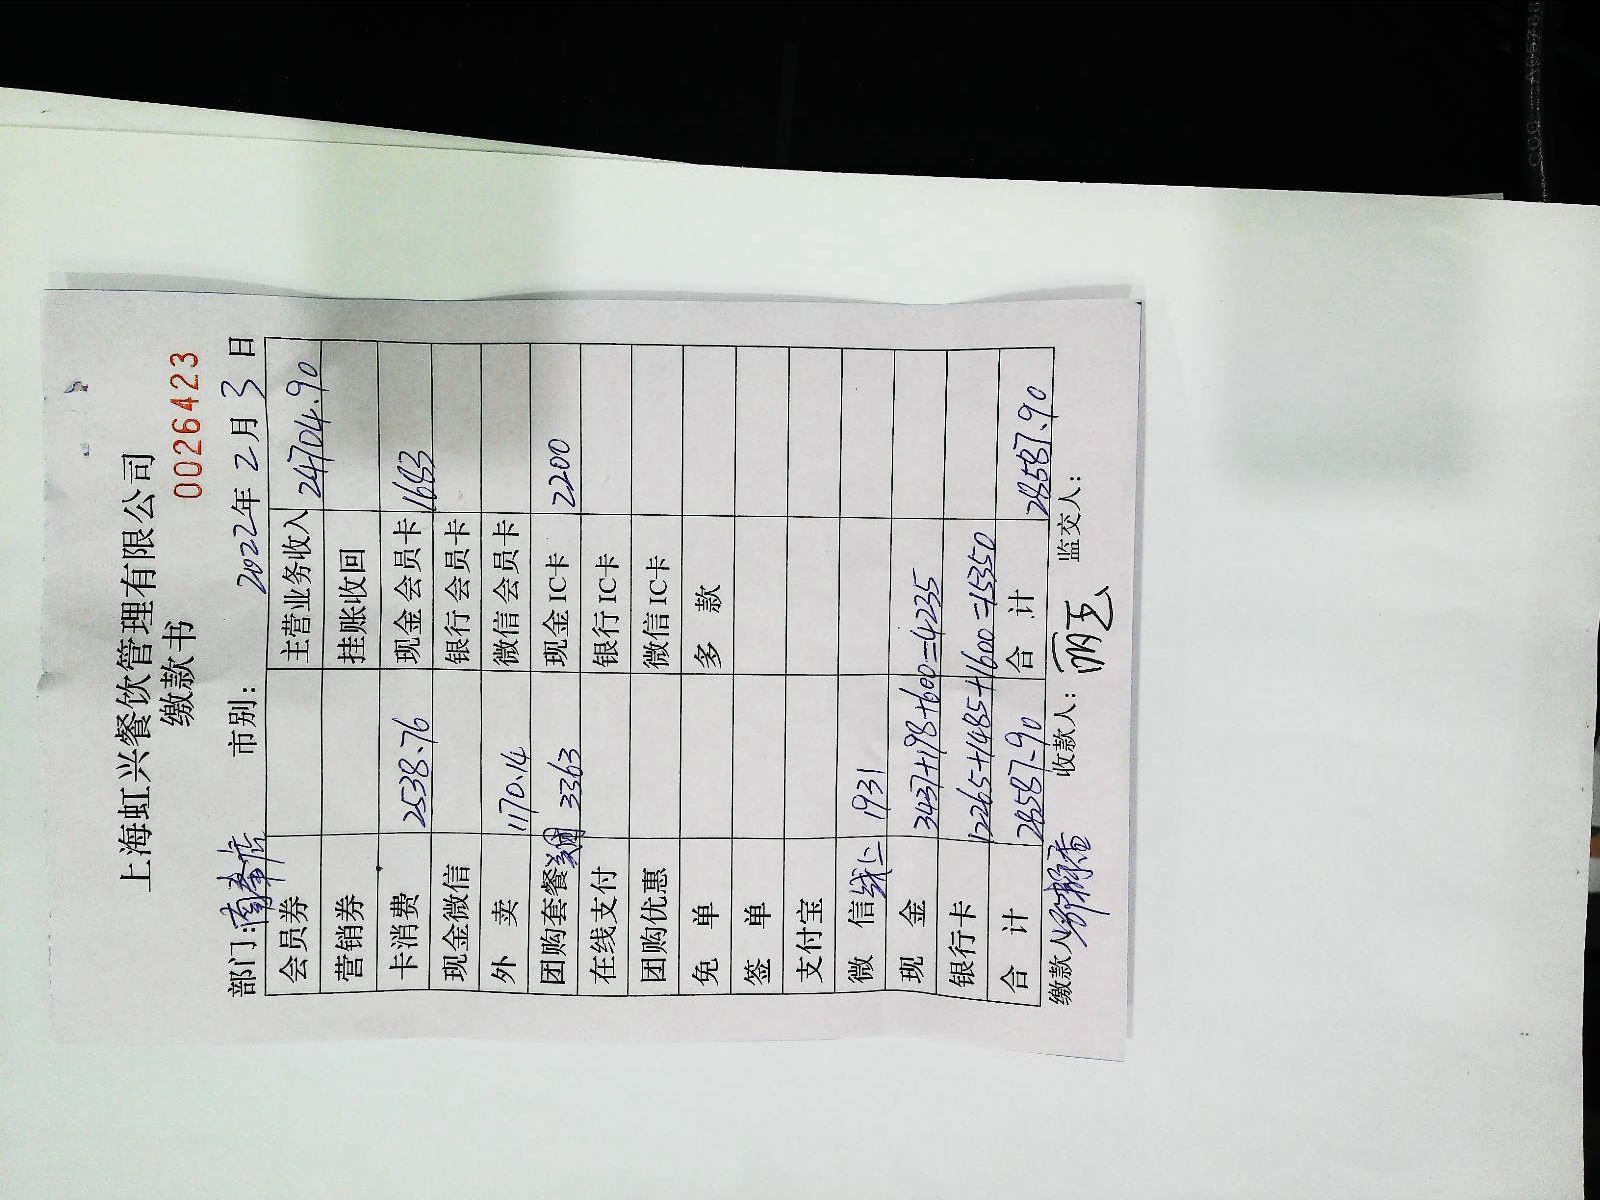 上海虹兴餐饮管理有限公司
缴款书
0026423
部门:南奉店 市别: 2022年 2月 3日
会员券 主营业务收入 24704.90
营销券 挂账收回
卡消费 2538.76 现金会员卡 1683
现金微信 银行会员卡
外 卖 1170.14 微信会员卡
团购套餐美团 3363 现金IC卡 2200
在线支付 银行IC卡
团购优惠 微信IC卡
免 单 多 款
签 单
支付宝
微 信线上 1931
现 金 3437+198+600=4235
银行卡 12265+1485+1600=15350
合 计 28587.90 合 计 28587.90
缴款人 收款人: 监交人: